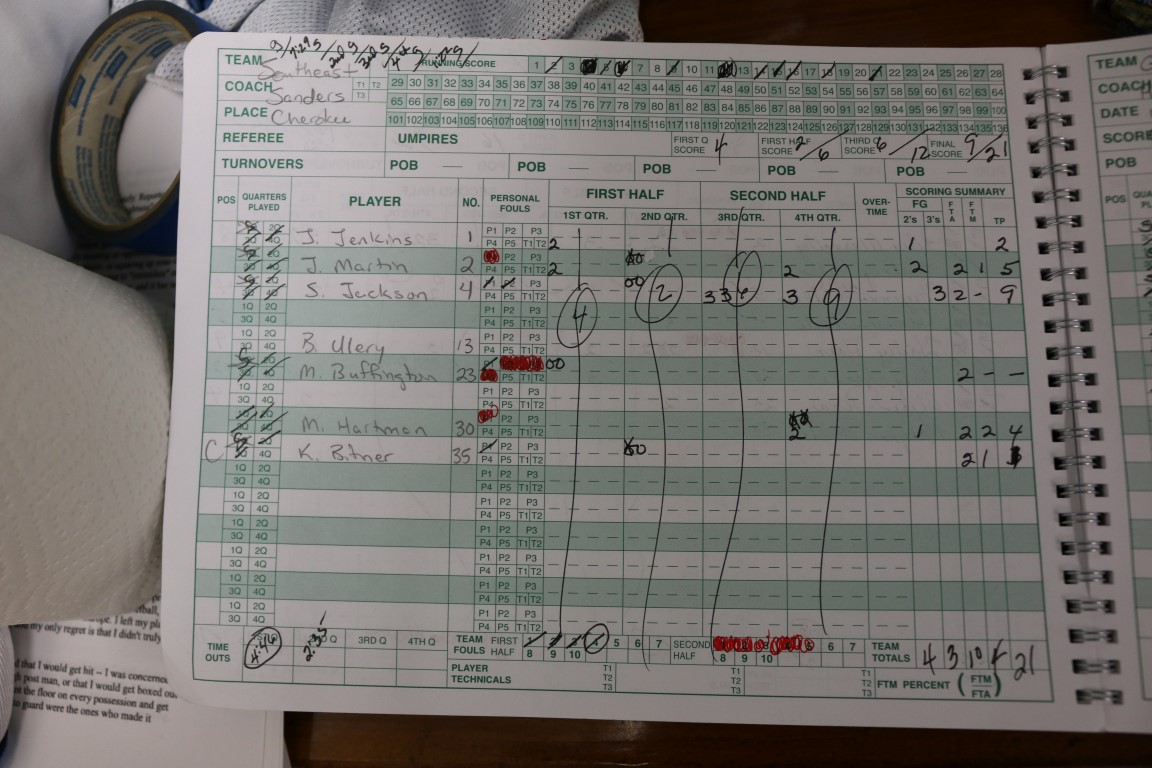 TEAM Southeast RUNNING SCORE 1 2 3 7 8 10 11 13 14 15 16 17 18 19 20 21 22 23 24 25 26 27 28
COACH Sanders T1 T2 T3 29 30 31 32 33 34 35 36 37 38 39 40 41 42 43 44 45 46 47 48 49 50 51 52 53 54 55 56 57 58 59 60 61 62 63 64
65 66 67 68 69 70 71 72 73 74 75 76 77 78 79 80 81 82 83 84 85 86 87 88 89 90 91 92 93 94 95 96 97 98 99 100
PLACE Cherokee 101 102 103 104 105 106 107 108 109 110 111 112 113 114 115 116 117 118 119 120 121 122 123 124 125 126 127 128 129 130 131 132 133 134 135 136
REFEREE UMPIRES FIRST Q SCORE 4 FIRST HALF SCORE 2/6 THIRD SCORE 6/12 FINAL SCORE 9/21
TURNOVERS POB — POB — POB — POB — POB —
POS QUARTERS PLAYED PLAYER NO. PERSONAL FOULS FIRST HALF SECOND HALF OVER-TIME SCORING SUMMARY
1ST QTR. 2ND QTR. 3RD QTR. 4TH QTR. FG 2's 3's FTA FTM TP
J. Jenkins 1 P1 P2 P3 P4 P5 T1 T2 2 1 2
J. Martin 2 P2 P3 P4 P5 T1 T2 2 2 2 2 1 5
S. Jackson 4 P3 P4 P5 T1 T2 00 3 3 3 3 2 - 9
1Q 2Q 3Q 4Q P1 P2 P3 P4 P5 T1 T2 4 2 6 9
B. Ulery 13 1Q 2Q P1 P2 P3 P4 P5 T1 T2
M. Buffington 23 P5 T1 T2 00 2 - -
1Q 2Q 3Q 4Q P1 P2 P3 P4 P5 T1 T2
M. Hartman 30 P2 P3 P4 P5 T1 T2 2 1 2 2 4
C K. Bitner 35 4Q P2 P3 P4 P5 T1 T2 2 1
1Q 2Q 3Q 4Q P1 P2 P3 P4 P5 T1 T2
1Q 2Q 3Q 4Q P1 P2 P3 P4 P5 T1 T2
1Q 2Q 3Q 4Q P1 P2 P3 P4 P5 T1 T2
1Q 2Q 3Q 4Q P1 P2 P3 P4 P5 T1 T2
1Q 2Q 3Q 4Q P1 P2 P3 P4 P5 T1 T2
1Q 2Q 3Q 4Q P1 P2 P3 P4 P5 T1 T2
TIME OUTS 4:46 2:33 3RD Q 4TH Q TEAM FOULS FIRST HALF 1 2 3 4 5 6 7 8 9 10 SECOND HALF 6 7 8 9 10 TEAM TOTALS 4 3 10 4 21
PLAYER TECHNICALS T1 T2 T3 T1 T2 T3 T1 T2 T3 FTM PERCENT (FTM/FTA)
TEAM
COACH
DATE
SCORE
POB
POS
ope. I left my
my only regret is that I didn't truly
d that I would get hit – I was concerned
post man, or that I would get boxed out
the floor on every possession and get
guard were the ones who made it